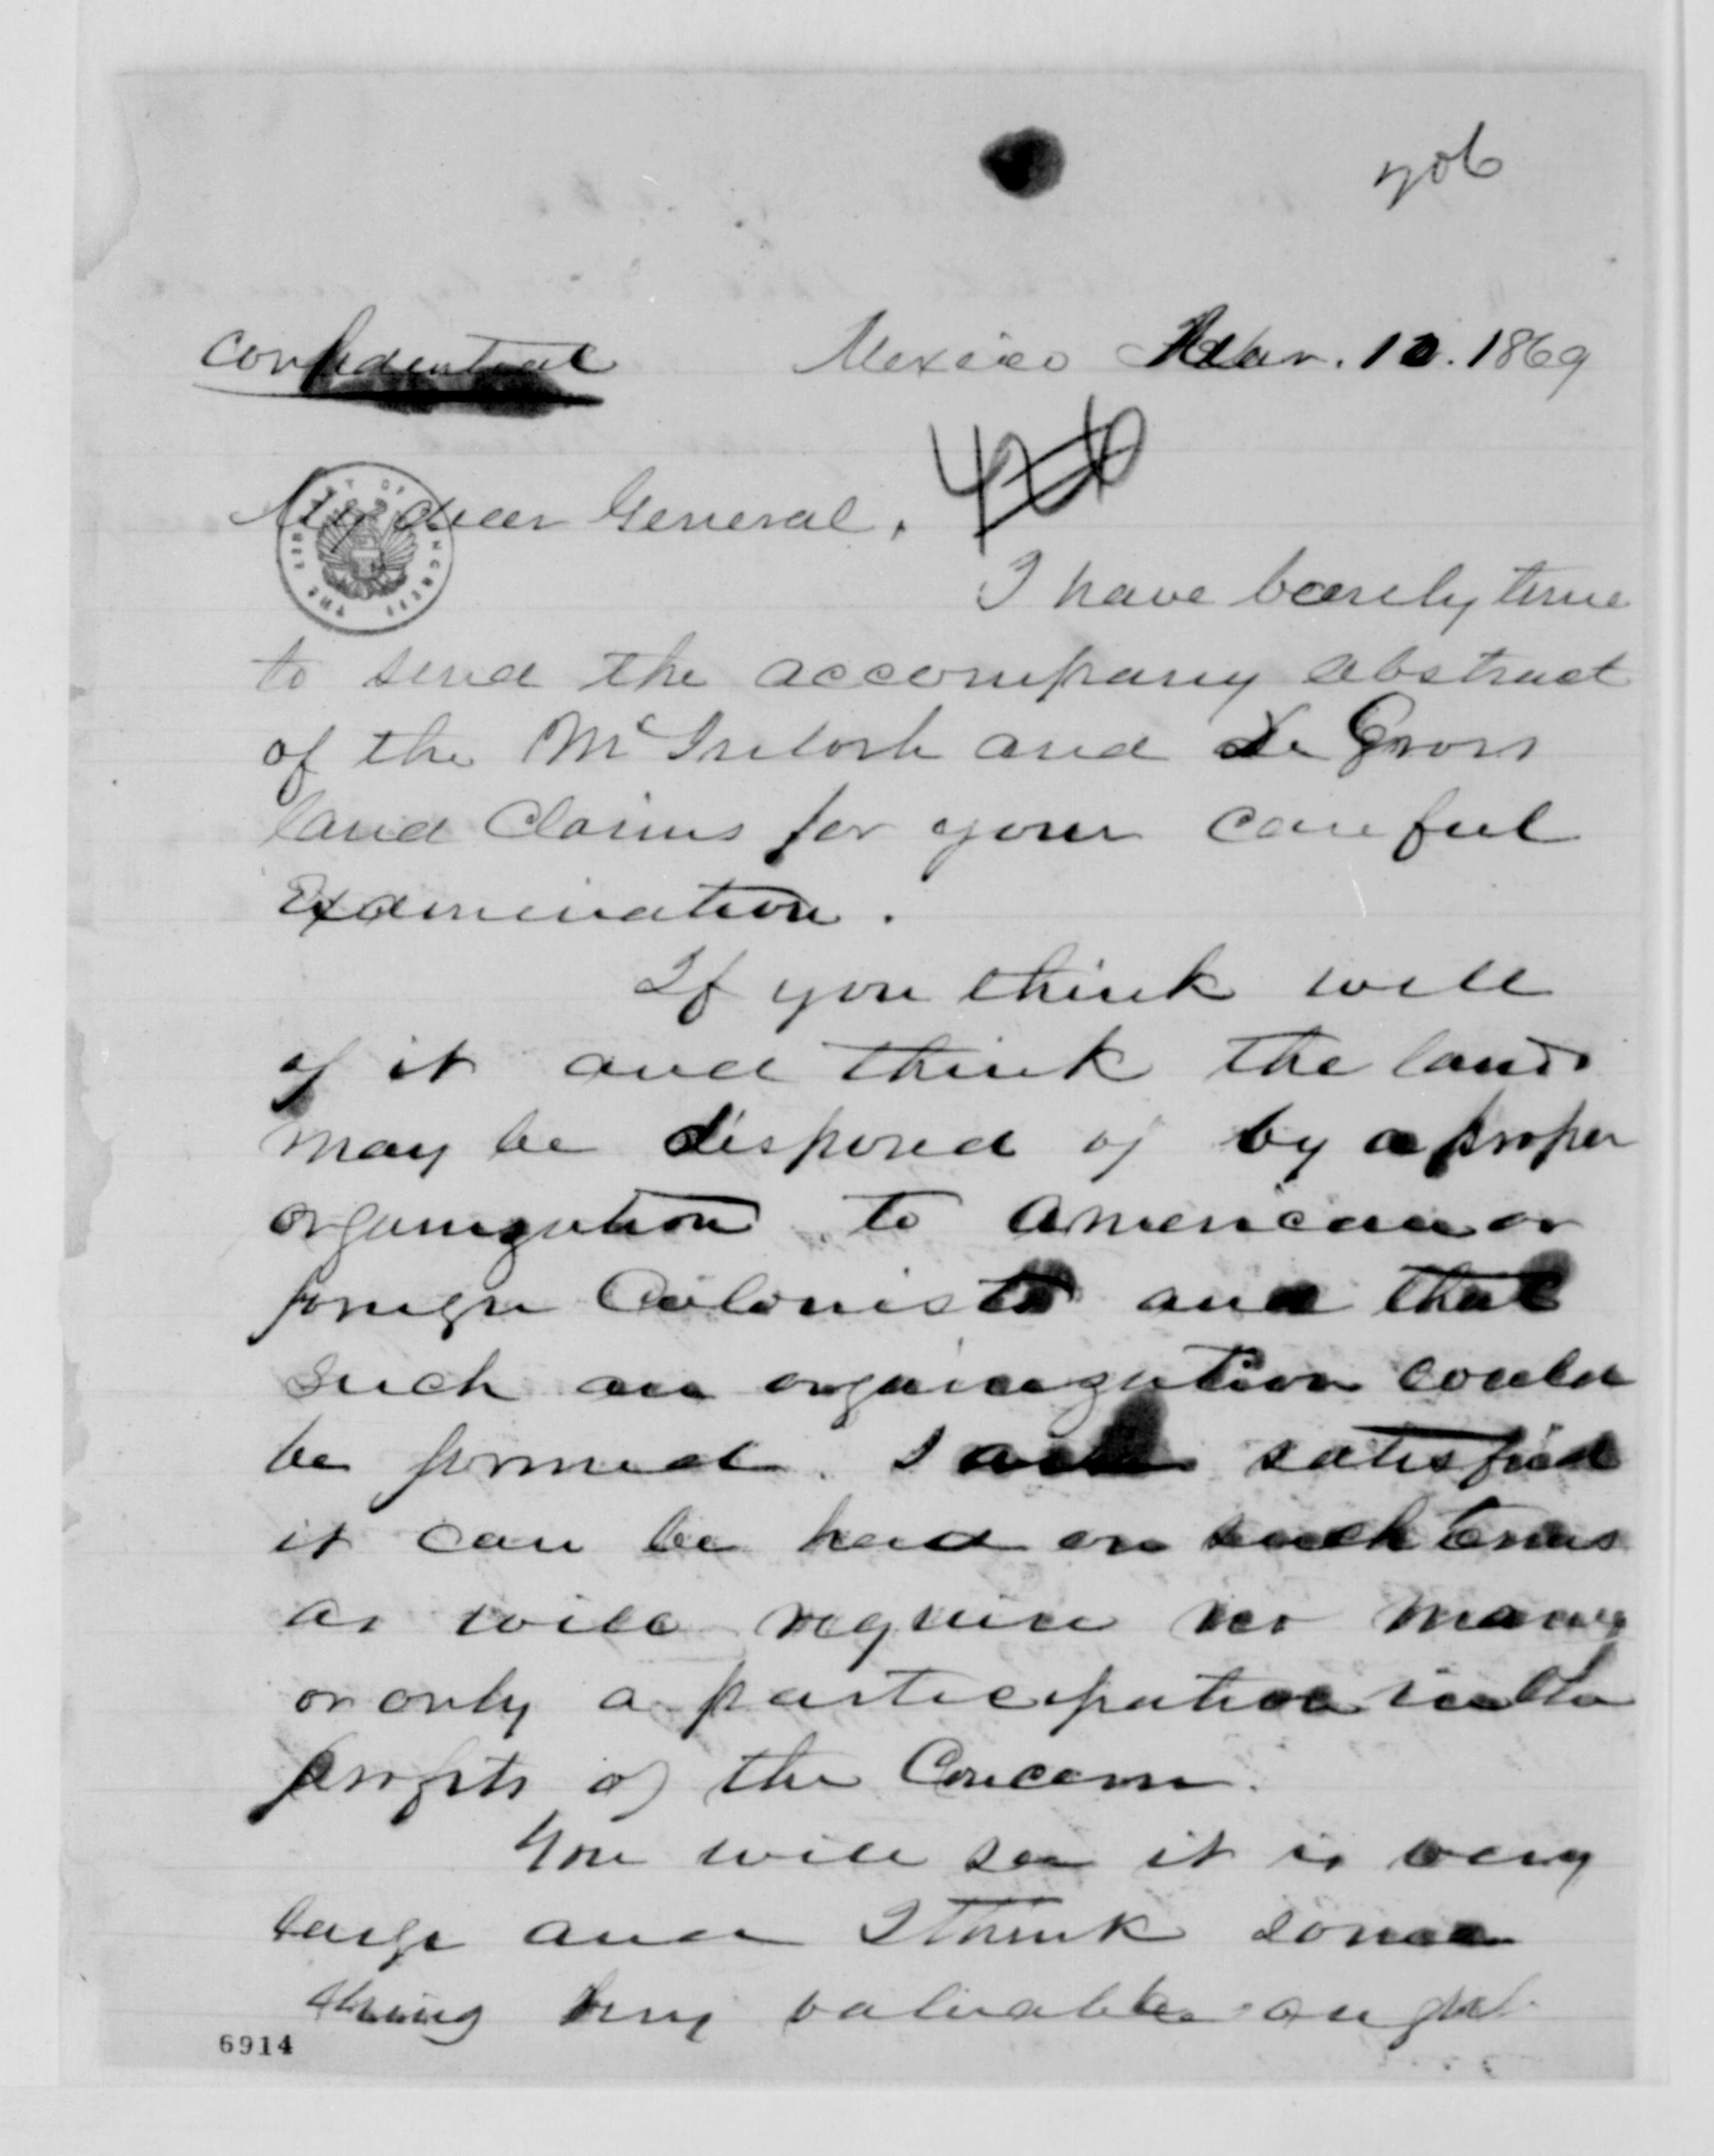 706
Confidential Mexico 10. 1869
My dear General,
THE LIBRARY OF CONGRESS
I have barely time
to send the accompany abstract
of the McIntosh and De Gross
land Claims for your careful
Examination.
If you think well
of it and think the lands
may be disposed of by a proper
organization to American or
foreign Colonists and that
such an organization could
be formed. I am satisfied
it can be had on such terms
as will require no money
or only a participation in the
profits of the Concern.
You will see it is very
large and I think some
thing very valuable ought
6914